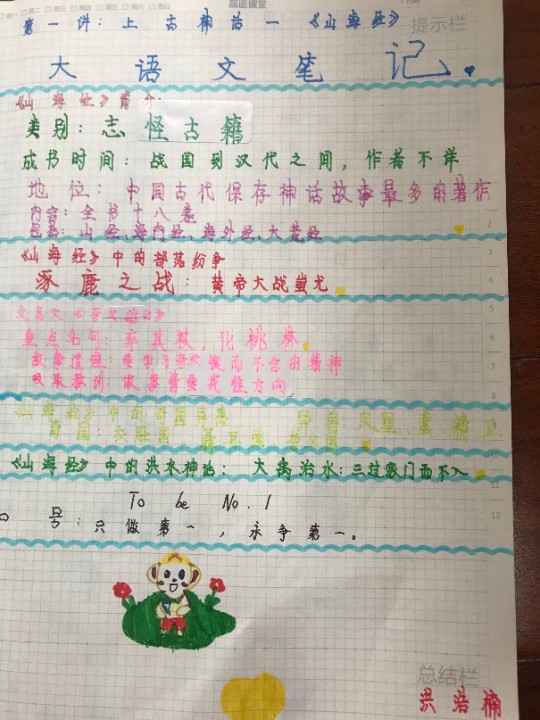 高途课堂
第一讲:上古神话一《山海经》
提示栏
大语文笔记
《山海经》简介:
类别:志怪古籍
成书时间:战国到汉代之间,作者不详
地位:中国古代保存神话故事最多的著作
内容:全书十八卷
包括:山经、海内经、海外经、大荒经
《山海经》中的部落纷争
涿鹿之战:黄帝大战蚩尤
重点名句:弃其杖,化桃林
吸取教训:做事情要找准方向
《山海经》中的
《山海经》中的洪水神话:大禹治水:三过家门而不入
To be No.1
口号:只做第一,永争第一。
总结栏
洪浩楠